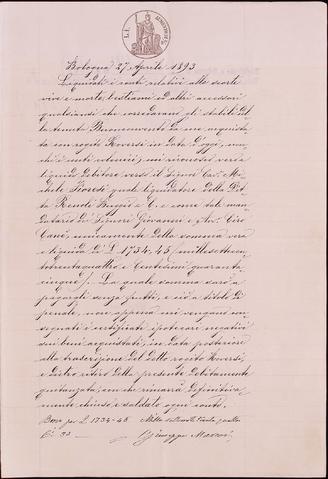 Bologna 27 Aprile 1893
Liquidati i conti relativi alle scorte
vive e morte, bestiami ed altri accessori
qualsiansi che corredavano gli stabili del
la tenuta Buonconvento da me acquista
ta con rogito in data d'oggi, con
chi i miei mi riconosco verso
liquido debitore verso il Signor Cav. Mi
chele quale liquidatore della Dit
ta Renoli & C. e come tale man
datario dei Signori Giovanni e Avv. Ciro
unicamente della somma vera
e liquida di £ 1734.45 (millesettecen
totrentaquattro, e Centesimi quaranta
cinque). La quale somma sarò a
pagargli senza frutti, e ciò a titolo di
penale, non appena mi vengano con
segnati i certificati ipotecari negativi
sui beni acquistati, in data posteriore
alla trascrizione del detto rogito
e dietro ritiro della presente debitamente
quitanzata, con che rimarrà definitiva
mente chiuso e saldato ogni conto.
Buono per £ 1734-45 Mille settecento trenta quattro
C.
Giuseppe